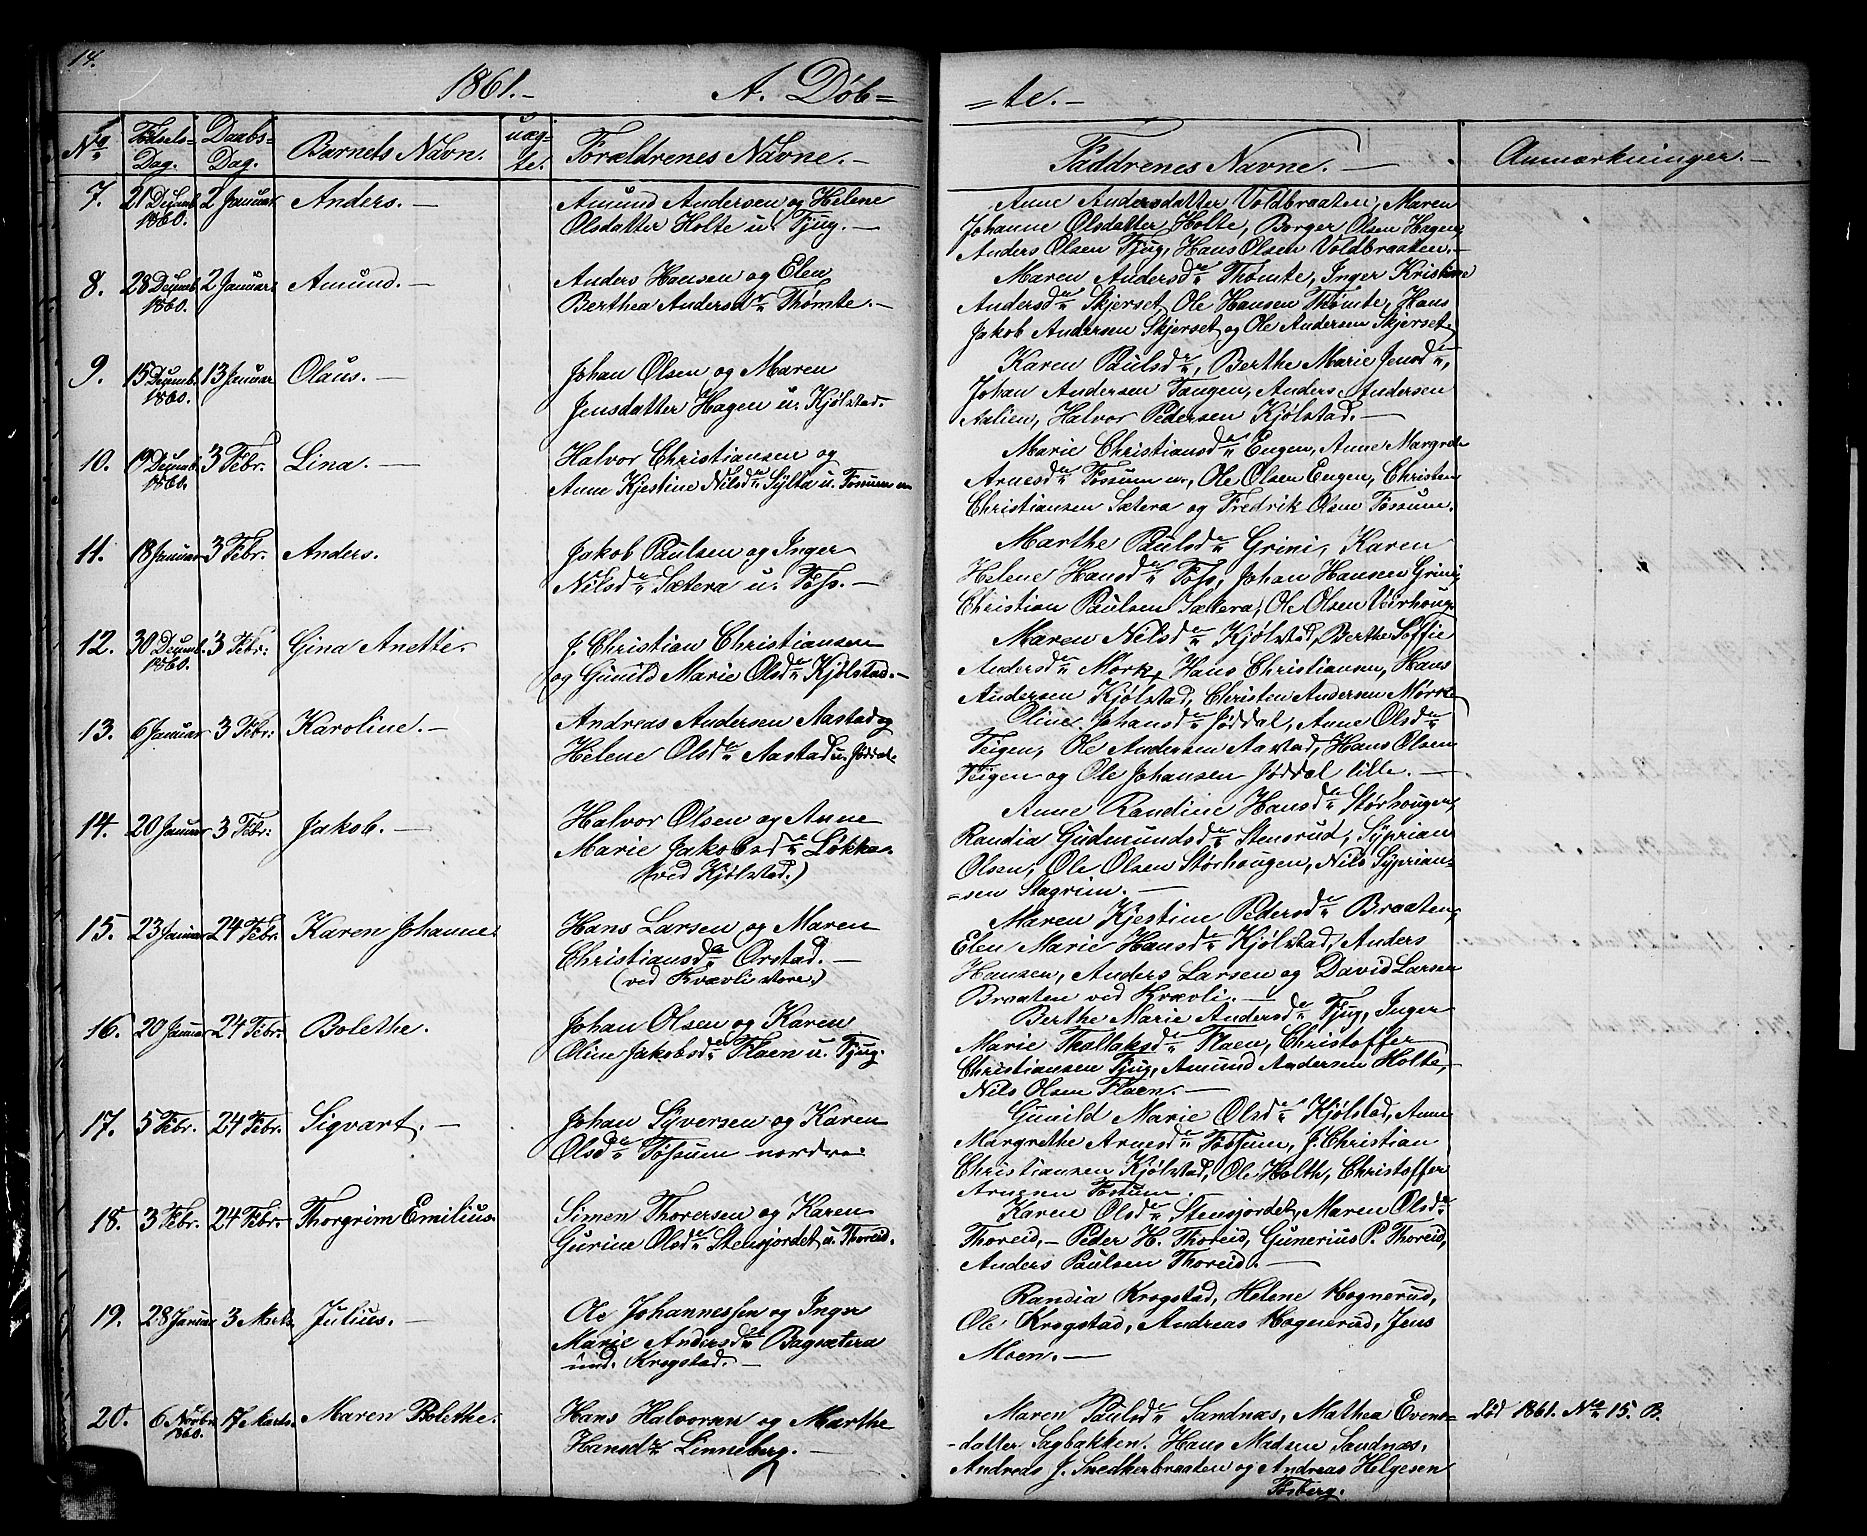 14.
1861.- A. Døb=
=te.-
No Fødsels- Daabs- Barnets Navn. uæg- Forældrenes Navne.- Faddrenes Navne.- Anmærkninger.-
Dag. Dag. te.
7. 21 Decemb. 2 Januar Anders.- Amund Andersen og Helene
1860. Olsdatter Holte u. Fjug.-
Anne Andersdatter Voldbraaten, Maren
Johanne Olsdatter Holte, Borger Olsen Hagen,
Anders Olsen Fjug, Hans Olsen Voldbraaten.-
8. 28 Decemb. 2 Januar Amund.- Anders Hansen og Elen
1860. Berthea Andersdr Thømte.-
Maren Andersdr Thømte, Inger Kristine
Andersdr Skjerset, Ole Hansen Thømte, Hans
Jakob Andersen Skjerset og Ole Andersen Skjerset.
9. 15 Decemb. 13 Januar Olaus.- Johan Olsen og Maren
1860. Jensdatter Hagen u. Kjølstad.
Karen Paulsdr, Berthe Marie Jensdr,
Johan Andersen Tangen, Anders Andersen
Aalien, Halvor Pedersen Kjølstad.-
10. 19 Decemb. 3 Febr. Lina.- Halvor Christiansen og
1860. Anne Kjestine Nilsdr Sylta u. Fossum
Marie Christiansdr Engen, Anne Margrete
Arnesdr Fossum, Ole Olsen Engen, Christen
Christiansen Sætera og Fredrik Olsen Fossum.
11. 18 Januar 3 Febr. Anders. Jakob Paulsen og Inger
Nilsdr Sætera u. Foss.-
Marthe Paulsdr Grini, Karen
Helene Hansdr Foss, Johan Hansen Grini,
Christian Paulsen Sætera, Ole Olsen
12. 30 Decemb. 3 Febr. Gina Anette. J. Christian Christiansen
1860. og Gunild Marie Olsdr Kjølstad.-
Maren Nilsdr Kjølstad, Berthe Soffie
Andersdr Mørk, Hans Christiansen, Hans
Andersen Kjølstad, Christen Andersen Mørk.
13. 6 Januar 3 Febr. Karoline.- Andreas Andersen Aastad og
Helene Olsdr Aastad u. Jøddal.
Oline Johansdr Jøddal, Anne Olsdr
Teigen, Ole Andersen Aastad, Hans Olsen
Teigen og Ole Johansen Jøddal lille.-
14. 20 Januar 3 Febr. Jakob.- Halvor Olsen og Anne
Marie Jakobsdr Løkka.
(ved Kjølstad.)
Anne Randine Hansdr Storhougen,
Randia Gudmundsdr Stensrud, Syprian
Olsen, Ole Olsen Storhougen, Nils Syprian-
-sen Stagrim.-
15. 23 Januar 24 Febr. Karen Johanne. Hans Larsen og Maren
Christiansdr Ørstad.-
(ved Kvævli store.)
Maren Kjestine Pedersdr Braaten,
Elen Marie Hansdr Kjølstad, Anders
Hansen, Anders Larsen og David Larsen
Braaten ved Kvævli.-
16. 20 Januar 24 Febr. Bolethe. Johan Olsen og Karen
Oline Jakobsdr Flaen u. Fjug.
Berthe Marie Andersdr Fjug, Inger
Marie Thollaksdr Flaen, Christoffer
Christiansen Fjug, Amund Andersen Holte,
Nils Olsen Flaen.-
17. 5 Febr. 24 Febr. Sigvart.- Johan Syversen og Karen
Olsdr Fossum nordre.
Gunild Marie Olsdr Kjølstad, Anne
Margrethe Arnesdr Fossum, J. Christian
Christiansen Kjølstad, Ole Holth, Christoffer
Arnesen Fossum.
18. 3 Febr. 24 Febr. Thorgrim Emilius. Simen Thoversen og Karen
Gurine Olsdr Stensjordet u. Thoreid.
Karen Olsdr Stensjordet, Maren Olsdr
Thoreid,- Peder H. Thoreid, Gunerius P. Thoreid,
Anders Paulsen Thoreid.-
19. 28 Januar 3 Marts Julius.- Ole Johannessen og Inger
Marie Andersdr Bagsætera
und. Krogstad.-
Randia Krogstad, Helene Hognerud,
Ole Krogstad, Andreas Hognerud, Jens
Moen.-
20. 6 Novbr. 17 Marts. Maren Bolethe. Hans Halvorsen og Marthe
1860. Hansdr Linneberg.-
Maren Paulsdr Sandnæs, Mathea Evens- død 1861. No 15. B.
-datter Sagbakken. Hans Madsen Sandnæs,
Andreas J. Snedkerbraaten og Andreas Helgesen
Fosberg.